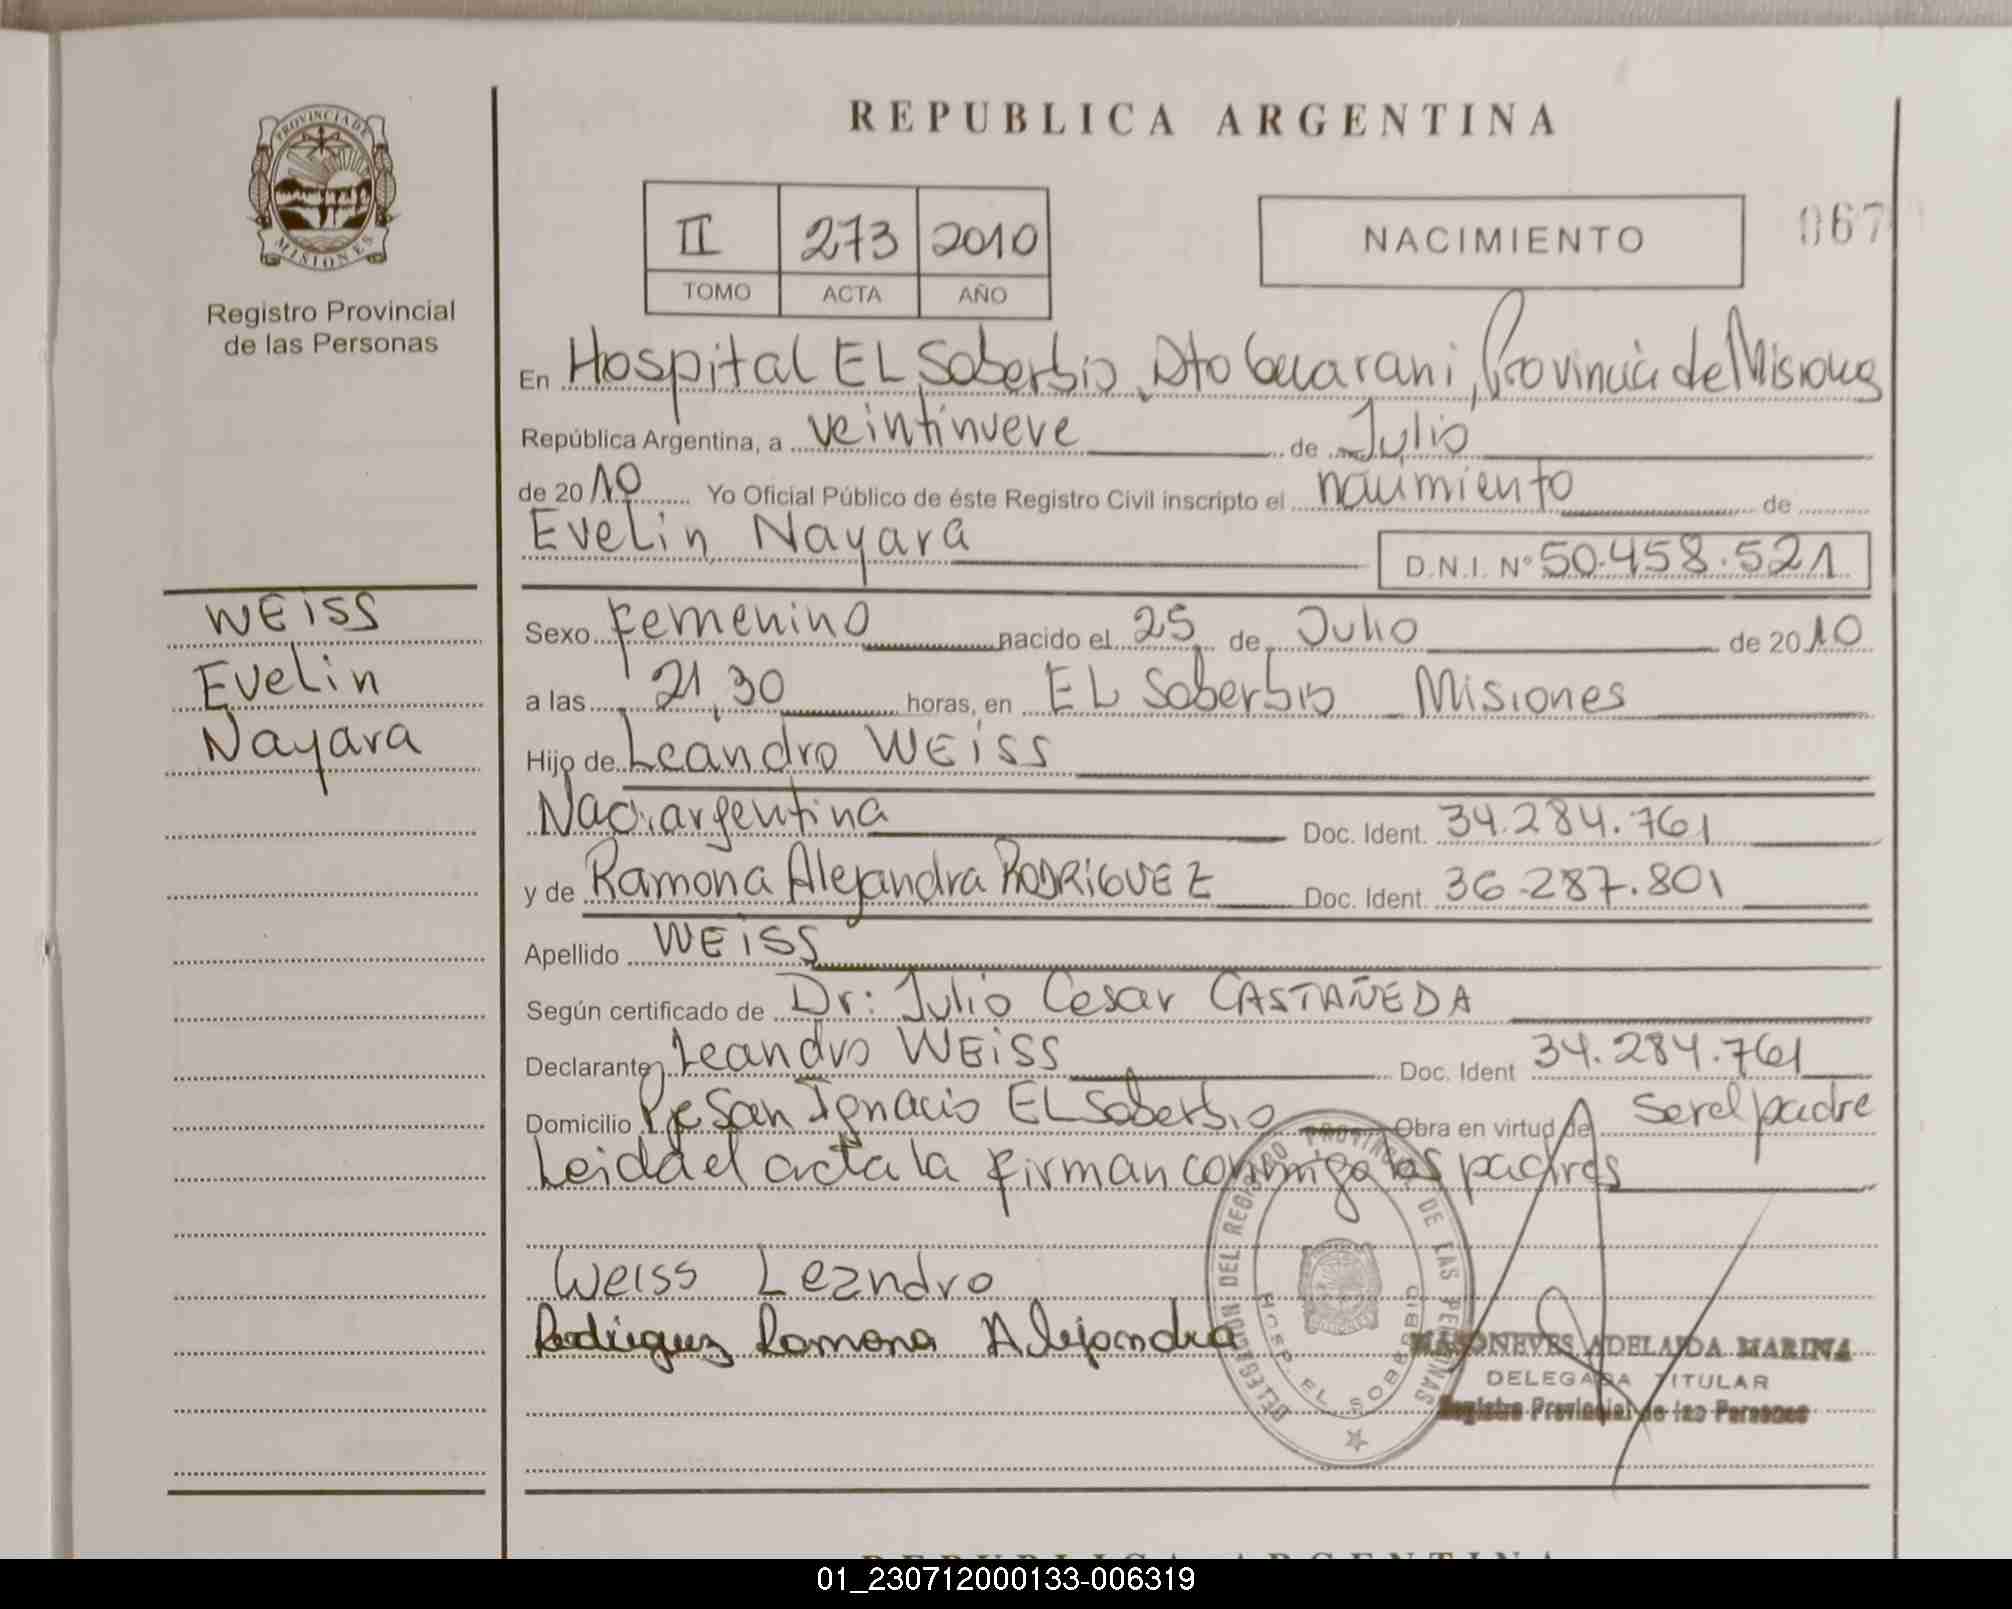 REPUBLICA ARGENTINA
PROVINCIA DE MISIONES
Registro Provincial
de las Personas
II 273 2010
TOMO ACTA AÑO
NACIMIENTO
067
En Hospital EL Soberbio, Dto Guarani, Provincia de Misiones
República Argentina, a veintinueve de Julio
de 2010 Yo Oficial Público de éste Registro Civil inscripto el nacimiento de
Evelin Nayara D.N.I. Nº 50.458.521
WEISS
Evelin
Nayara
Sexo femenino nacido el 25 de Julio de 2010
a las 21,30 horas, en EL Soberbio Misiones
Hijo de Leandro WEISS
Nac. argentina Doc. Ident. 34.284.761
y de Ramona Alejandra RODRIGUEZ Doc. Ident. 36.287.801
Apellido WEISS
Según certificado de Dr: Julio Cesar CASTAÑEDA
Declarante Leandro WEISS Doc. Ident 34.284.761
Domicilio Pje San Ignacio EL Soberbio Obra en virtud de Ser el padre
Leida el acta la firman conmigo los padres
Weiss Leandro
Rodriguez Ramona Alejandra
DELEGACION DEL REGISTRO PROVINCIAL DE LAS PERSONAS
HOSP. EL SOBERBIO
ADELAIDA MARINA
DELEGADA TITULAR
Registro Provincial de las Personas
REPUBLICA ARGENTINA
01_230712000133-006319